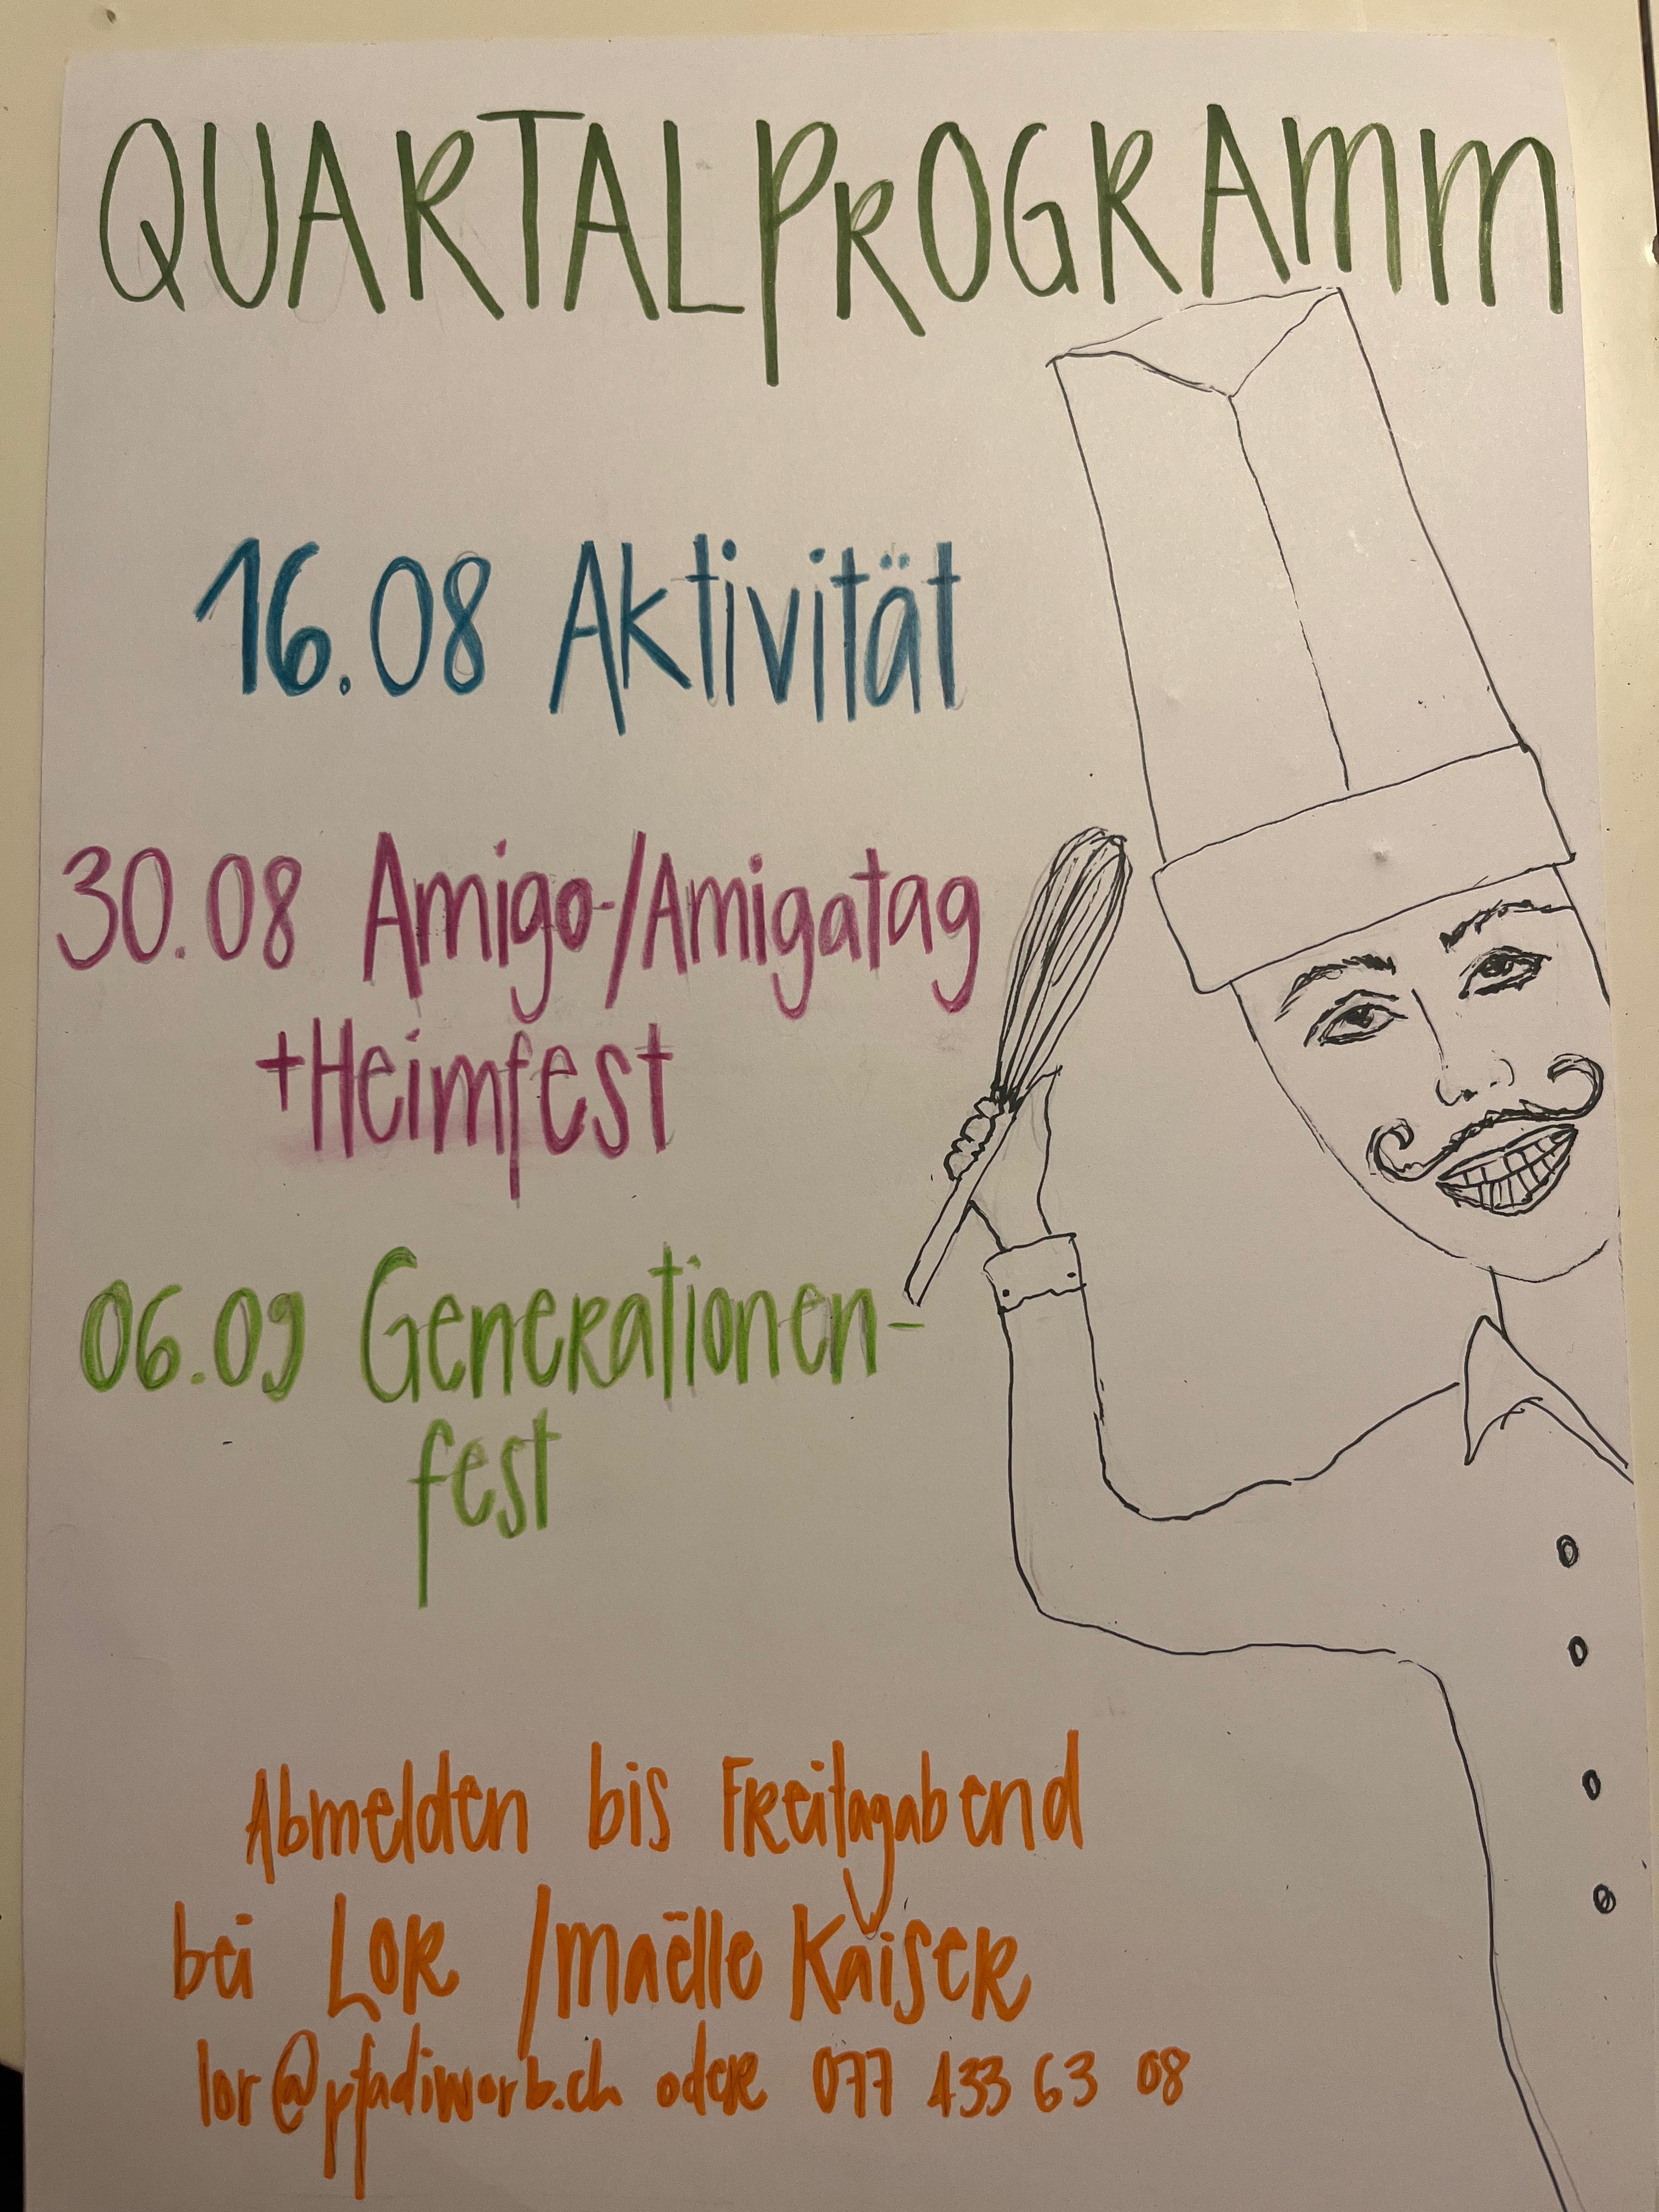 QUARTALPROGRAMM
16.08 Aktivität
30.08 Amigo-/Amigatag
+Heimfest
06.09 Generationen-
fest
Abmelden bis Freitagabend
bei Lor /Maëlle Kaiser
lor@pfadiworb.ch oder 077 433 63 08